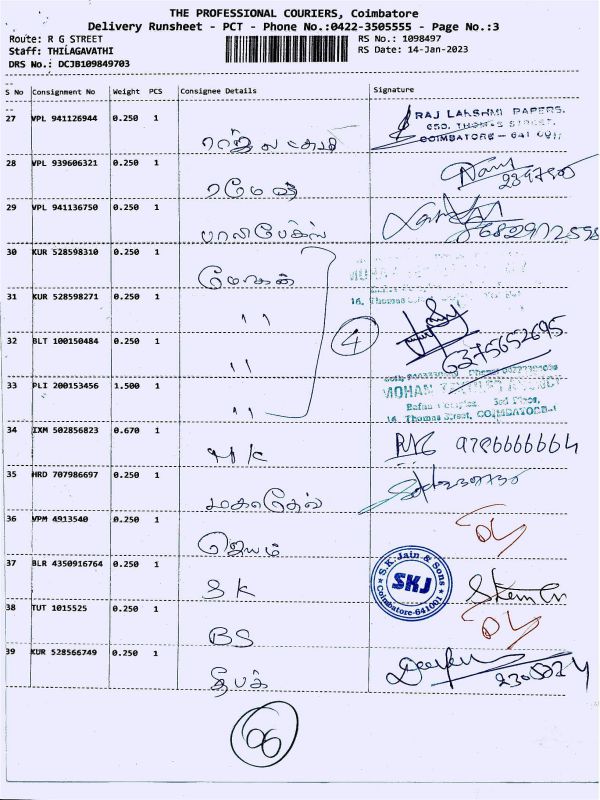 THE PROFESSIONAL COURIERS, Coimbatore
Delivery Runsheet - PCT - Phone No.:0422-3505555 - Page No.:3
Route: R G STREET
RS No.: 1098497
Staff: THILAGAVATHI
RS Date: 14-Jan-2023
DRS No.: DCJB109849703
S No Consignment No Weight PCS Consignee Details Signature
27 VPL 941126944 0.250 1
RAJ LAKSHMI PAPERS.
650, THOMAS STREET,
COIMBATORE - 641 001
ராஜலட்சுமி
28 VPL 939606321 0.250 1
ரமேஷ்
29 VPL 941136750 0.250 1
பாலிபேக்ஸ்
30 KUR 528598310 0.250 1
மோகன்
16, Thomas
31 KUR 528598271 0.250 1
11
4
32 BLT 100150484 0.250 1
6375652695
11
33 PLI 200153456 1.500 1
MOHAN TEXTILES AGENCY
3rd Floor,
16 Thomas Street, COIMBATORE-1
11
34 IXM 502856823 0.670 1
9786666664
MK
35 HRD 707986697 0.250 1
மகாதேவ்
36 VPM 4913540 0.250 1
ஜெயம்
37 BLR 4350916764 0.250 1
S.K. Jain & Sons
SKJ
Coimbatore-641001
SK
38 TUT 1015525 0.250 1
BS
39 KUR 528566749 0.250 1
தீபக்
06